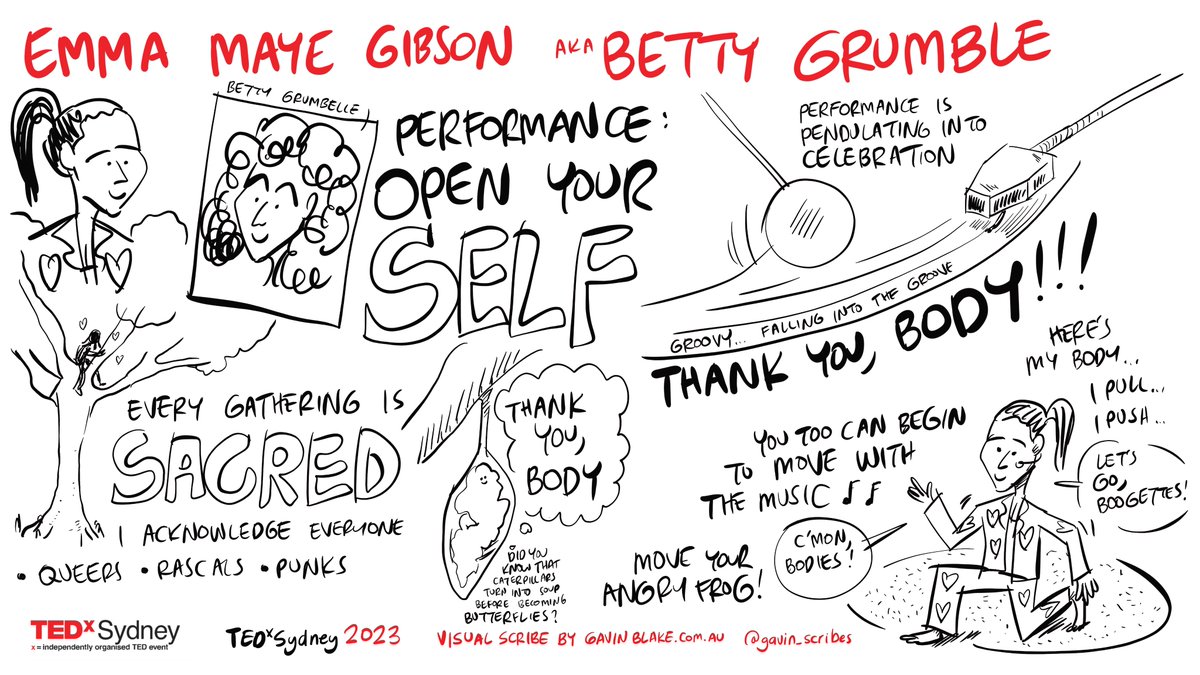 EMMA MAYE GIBSON AKA BETTY GRUMBLE
BETTY GRUMBELLE
PERFORMANCE:
OPEN YOUR
SELF
PERFORMANCE IS
PENDULATING INTO
CELEBRATION
GROOVY... FALLING INTO THE GROOVE
THANK YOU, BODY!!!
EVERY GATHERING IS
SACRED
I ACKNOWLEDGE EVERYONE
• QUEERS • RASCALS • PUNKS
THANK
YOU,
BODY
DID YOU
KNOW THAT
CATERPILLARS
TURN INTO SOUP
BEFORE BECOMING
BUTTERFLIES?
YOU TOO CAN BEGIN
TO MOVE WITH
THE MUSIC ♪♪
C'MON,
BODIES!
MOVE YOUR
ANGRY FROG!
HERE'S
MY BODY...
I PULL...
I PUSH...
LET'S
GO,
BOOGETTES!
TEDxSydney
x = independently organised TED event
TEDxSydney 2023
VISUAL SCRIBE BY GAVIN BLAKE.COM.AU @gavin_scribes